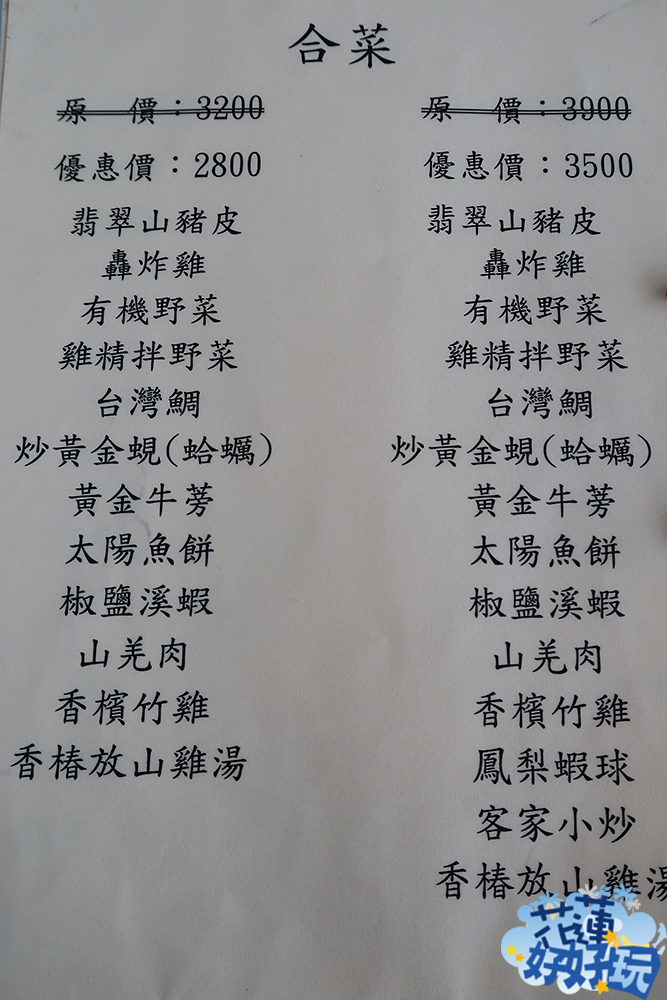 合菜
原　價：3200
優惠價：2800
翡翠山豬皮
轟炸雞
有機野菜
雞精拌野菜
台灣鯛
炒黃金蜆(蛤蠣)
黃金牛蒡
太陽魚餅
椒鹽溪蝦
山羌肉
香檳竹雞
香椿放山雞湯
原　價：3900
優惠價：3500
翡翠山豬皮
轟炸雞
有機野菜
雞精拌野菜
台灣鯛
炒黃金蜆(蛤蠣)
黃金牛蒡
太陽魚餅
椒鹽溪蝦
山羌肉
香檳竹雞
鳳梨蝦球
客家小炒
香椿放山雞湯
花蓮
好好玩